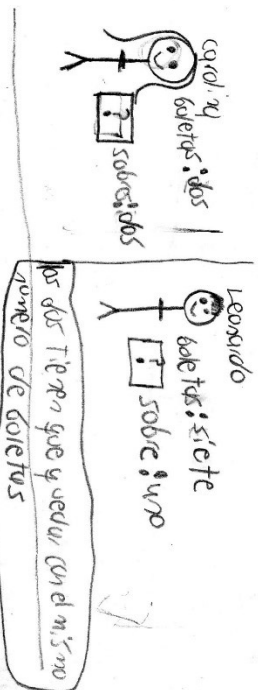 Carolina
boletas: dos
?
sobres: dos
Leonardo
boletas: siete
?
sobre: uno
los dos tienen que quedar con el mismo
número de boletas